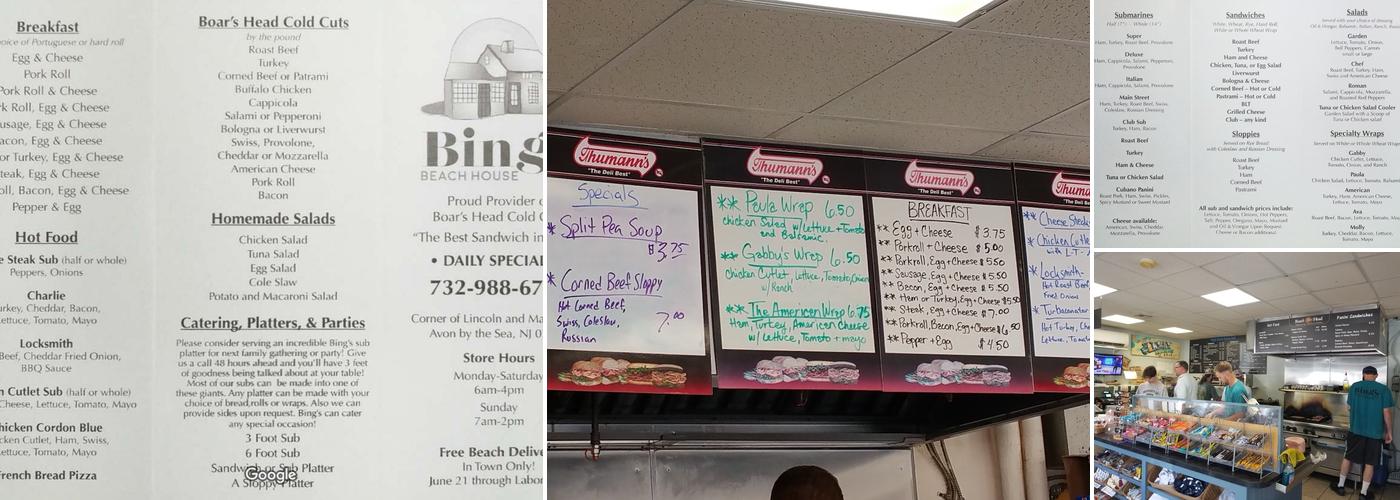 Breakfast
oice of Portuguese or hard roll
Egg & Cheese
Pork Roll
Pork Roll & Cheese
rk Roll, Egg & Cheese
usage, Egg & Cheese
acon, Egg & Cheese
or Turkey, Egg & Cheese
teak, Egg & Cheese
oll, Bacon, Egg & Cheese
Pepper & Egg
Hot Food
e Steak Sub (half or whole)
Peppers, Onions
Charlie
urkey, Cheddar, Bacon,
ettuce, Tomato, Mayo
Locksmith
Beef, Cheddar Fried Onion,
BBQ Sauce
n Cutlet Sub (half or whole)
Cheese, Lettuce, Tomato, Mayo
hicken Cordon Blue
cken Cutlet, Ham, Swiss,
ettuce, Tomato, Mayo
rench Bread Pizza
Boar's Head Cold Cuts
by the pound
Roast Beef
Turkey
Corned Beef or Patrami
Buffalo Chicken
Cappicola
Salami or Pepperoni
Bologna or Liverwurst
Swiss, Provolone,
Cheddar or Mozzarella
American Cheese
Pork Roll
Bacon
Homemade Salads
Chicken Salad
Tuna Salad
Egg Salad
Cole Slaw
Potato and Macaroni Salad
Catering, Platters, & Parties
Please consider serving an incredible Bing's sub
platter for next family gathering or party! Give
us a call 48 hours ahead and you'll have 3 feet
of goodness being talked about at your table!
Most of our subs can be made into one of
these giants. Any platter can be made with your
choice of bread,rolls or wraps. Also we can
provide sides upon request. Bing's can cater
any special occasion!
3 Foot Sub
6 Foot Sub
Sandwich or Sub Platter
A Sloppy Platter
Google
Bing
BEACH HOUSE
Proud Provider o
Boar's Head Cold C
"The Best Sandwich in
• DAILY SPECIAL
732-988-67
Corner of Lincoln and Ma
Avon by the Sea, NJ 0
Store Hours
Monday-Saturday
6am-4pm
Sunday
7am-2pm
Free Beach Delive
In Town Only!
June 21 through Labor
Thumann's
"The Deli Best"
Specials
* Split Pea Soup
$3.75
* Corned Beef Sloppy
Hot Corned Beef,
Swiss, Coleslaw,
Russian
7.00
Thumann's
"The Deli Best"
** Paula Wrap 6.50
chicken Salad w/Lettuce + Tomato
and Balsamic.
** Gabby's Wrap 6.50
chicken Cutlet, Lettuce, Tomato, Onion
w/Ranch
** The American Wrap 6.75
Ham, Turkey, American Cheese
w/ Lettuce, Tomato + mayo
Thumann's
"The Deli Best"
BREAKFAST
** Egg + Cheese $3.75
** Porkroll + Cheese $5.00
** Porkroll, Egg + Cheese $5.50
** Sausage, Egg + Cheese $5.50
** Bacon, Egg + Cheese $5.50
** Ham or Turkey, Egg + Cheese $5.50
** Steak, Egg + Cheese $7.00
** Porkroll, Bacon, Egg + Cheese $6.50
** Pepper + Egg $4.50
Thuma
"The Deli
* Cheese Steak
* Chicken Cutle
with L-T-
* Locksmith-
Hot Roast Beef
Fried Onion
Hot Turkey, Ch
Lettuce, Tomat
Submarines
Half (7") - Whole (14")
Super
Ham, Turkey, Roast Beef, Provolone
Deluxe
Ham, Cappicola, Salami, Pepperoni,
Provolone
Italian
Ham, Cappicola, Salami, Provolone
Main Street
Ham, Turkey, Roast Beef, Swiss,
Coleslaw, Russian Dressing
Club Sub
Turkey, Ham, Bacon
Roast Beef
Turkey
Ham & Cheese
Tuna or Chicken Salad
Cubano Panini
Roast Pork, Ham, Swiss, Pickles,
Spicy Mustard or Sweet Mustard
Cheese available:
American, Swiss, Cheddar,
Mozzarella, Provolone
Sandwiches
White, Wheat, Rye, Hard Roll,
White or Whole Wheat Wrap
Roast Beef
Turkey
Ham and Cheese
Chicken, Tuna, or Egg Salad
Liverwurst
Bologna & Cheese
Corned Beef – Hot or Cold
Pastrami – Hot or Cold
BLT
Grilled Cheese
Club – any kind
Sloppies
Served on Rye Bread
with Coleslaw and Russian Dressing
Roast Beef
Turkey
Ham
Corned Beef
Pastrami
All sub and sandwich prices include:
Lettuce, Tomato, Onions, Hot Peppers,
Salt, Pepper, Oregano, Mayo, Mustard
and Oil & Vinegar Upon Request.
Cheese or Bacon additional
Salads
Served with your choice of dressing
Garden
Lettuce, Tomato, Onion,
Bell Peppers, Carrots
small or large
Chef
Roast Beef, Turkey, Ham,
Swiss and American Cheese
Roman
Salami, Cappicola, Mozzarella,
and Roasted Red Peppers
Tuna or Chicken Salad Cooler
Garden Salad with a Scoop of
Tuna or Chicken salad
Specialty Wraps
Served on White or Whole Wheat Wrap
Gabby
Chicken Cutlet, Lettuce,
Tomato, Onion and Ranch
Paula
Chicken Salad, Lettuce, Tomato, Balsam
American
Turkey, Ham, American Cheese,
Lettuce, Tomato, Mayo
Ava
Roast Beef, Bacon, Lettuce, Tomato, May
Molly
Turkey, Cheddar, Bacon, Lettuce,
Tomato, Mayo